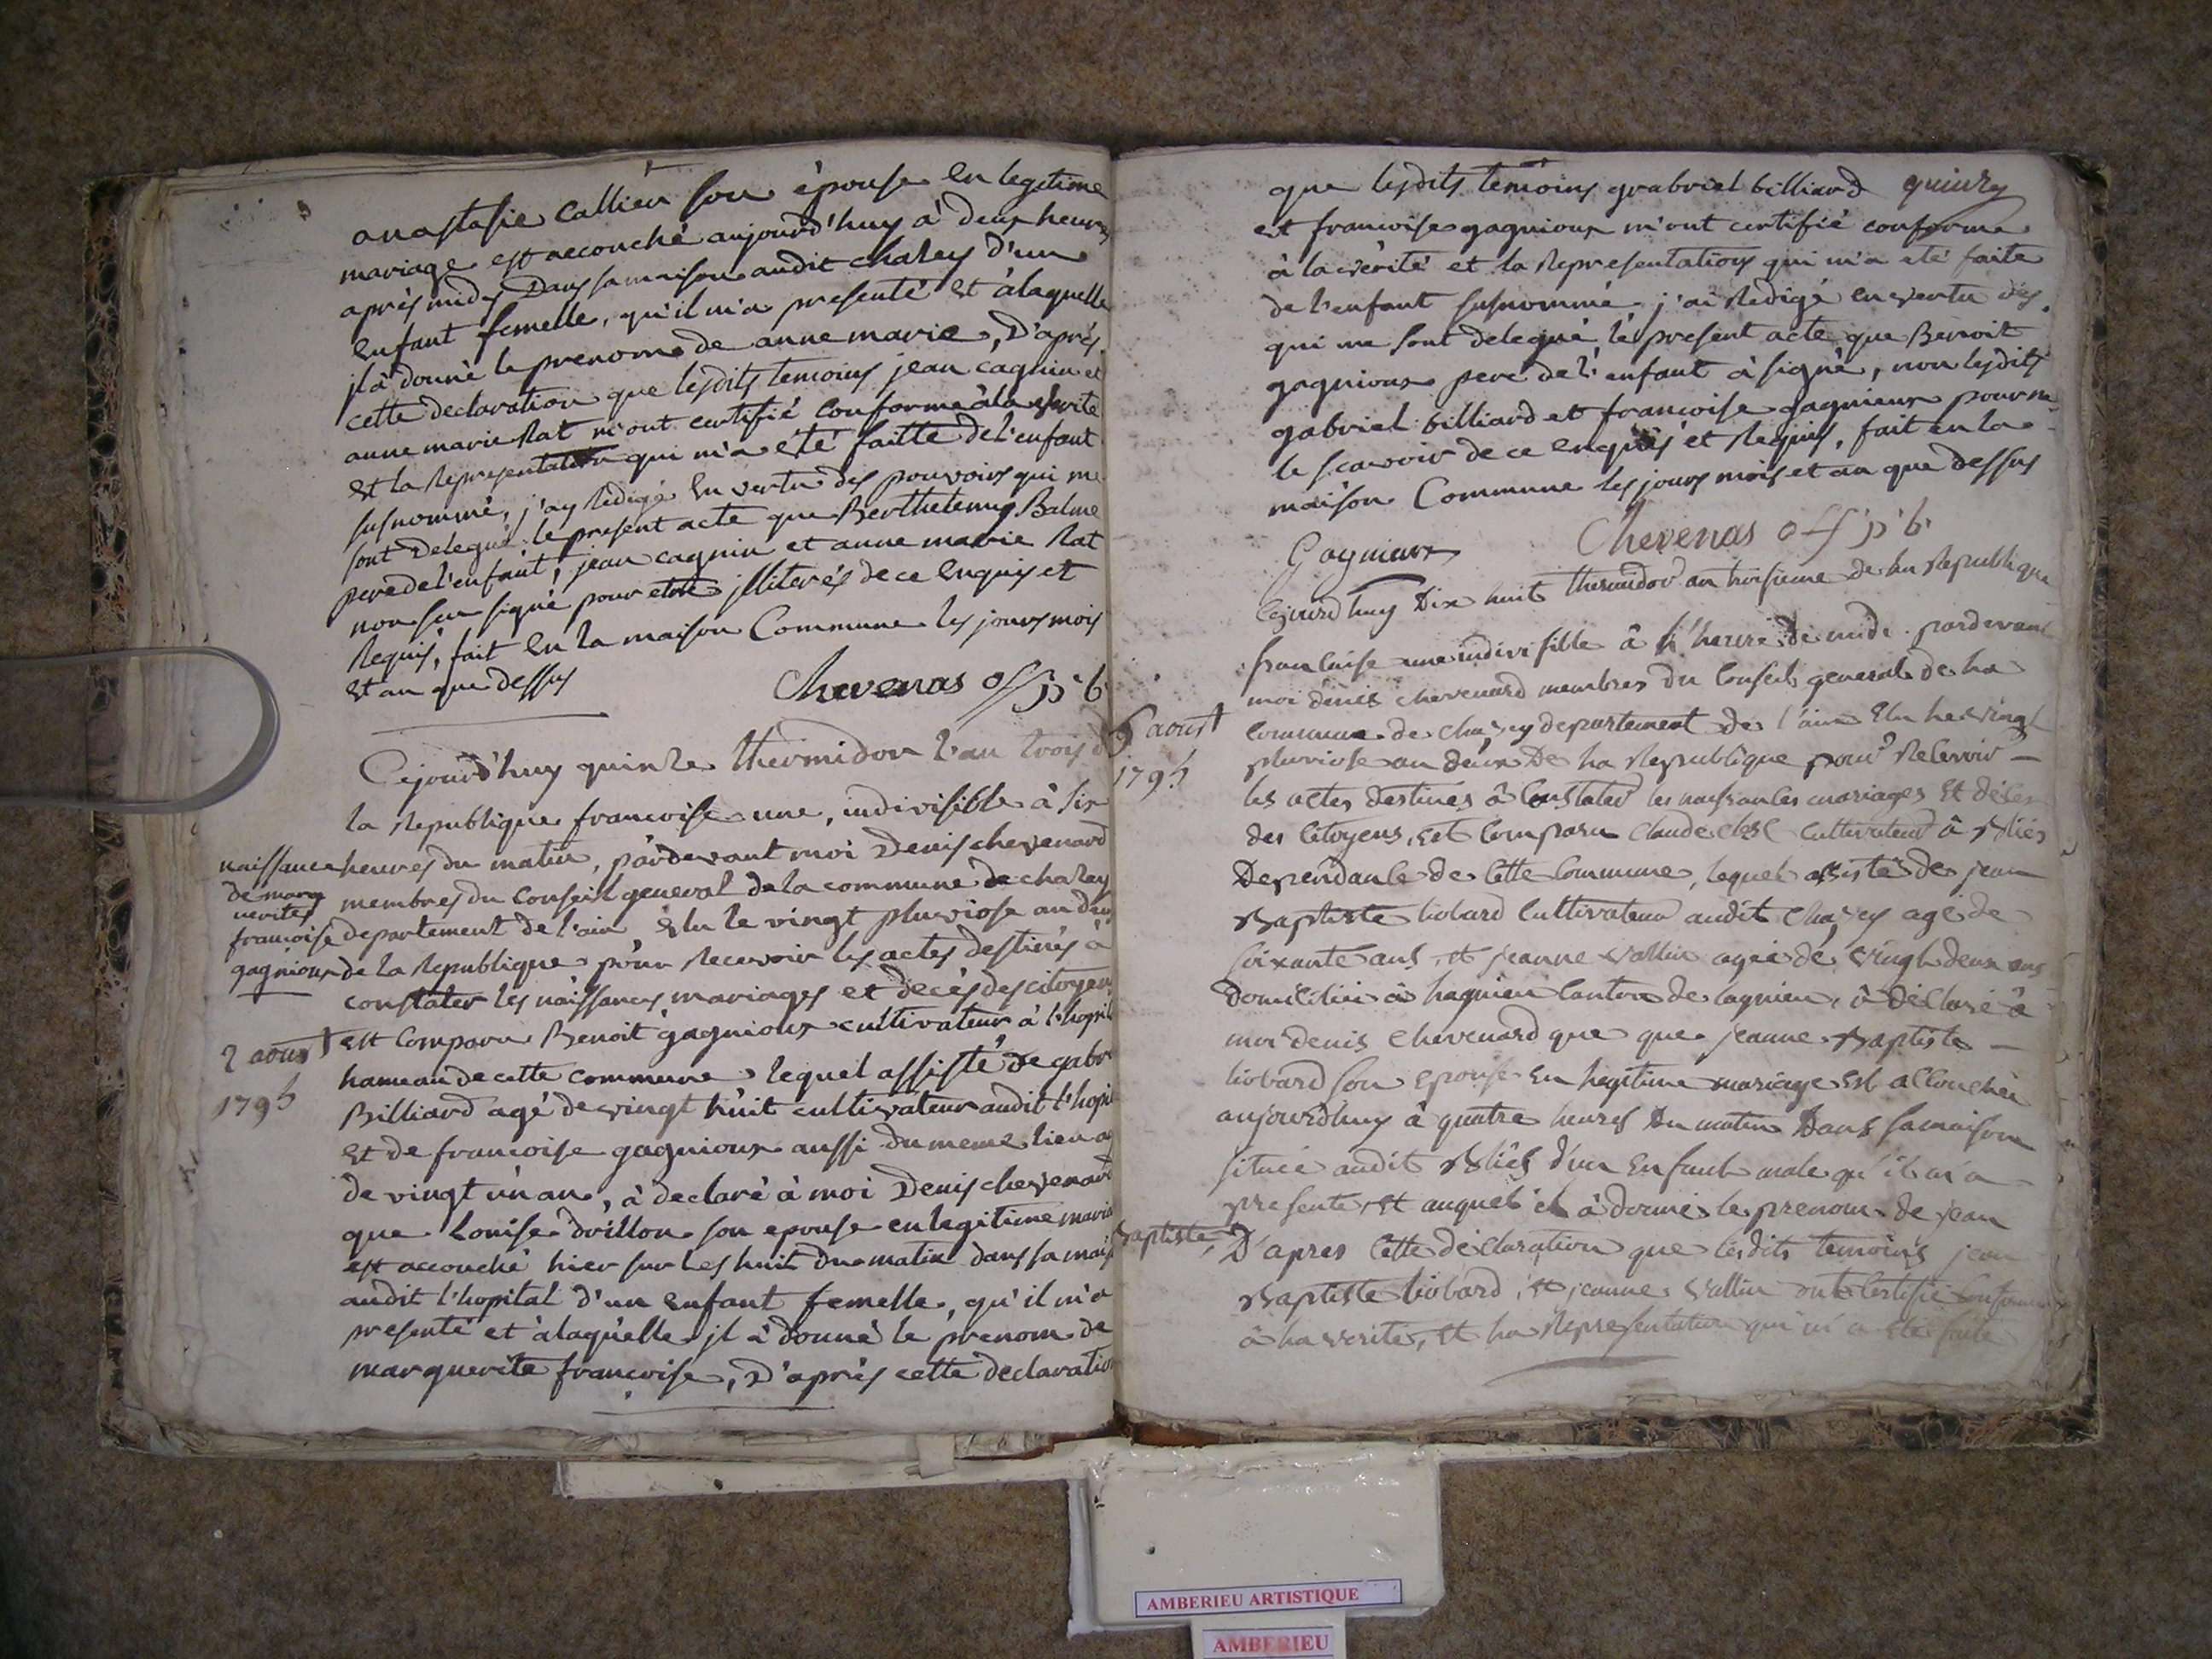 anastasie Callien son épouse en legitime
mariage est accouché aujourd'huy à deux heures
après midy Dans sa maison audit chazey d'un
enfant femelle, qu'il m'a presenté et à laquelle
jl à donné le prenom de anne marie, D'après
cette declaration que lesdits temoins jean cagnin et
anne marie Rat m'ont certifié conforme à la verité
et la Representation qui m'a été faitte de l'enfant
susnommé, j'ay Redigé en vertu des pouvoirs qui me
sont Delegué le present acte que Berthelemy Balme
pere de l'enfant, jean cagnin et anne marie Rat
non signé pour etre jlliterés de ce enquis et
Requis, fait en la maison Commune les jours mois
et an que dessus
Chevenas off pb
Cejourd'huy quinze thermidor l'an trois d
la Republique francoise une, indivisible à six
heures du matin, pardevant moi Denis chevenard
membres du Conseil general de la commune de chazey
departement de l'ain Elu le vingt pluviose an deux
de la Republique pour Recevoir les actes destinés à
constater les naissances mariages et decès des citoyens
est Comparu Benoit gagnioux cultivateur à l'hopital
hameau de cette commune lequel assisté de gabr
Billiard agé de vingt huit cultivateur audit l'hopi
et de francoise gagnioux aussi du meme lieu ag
de vingt un an, à declaré à moi Denis chevenard
que Louise Drillon son epouse en legitime maria
est accouché hier sur les huit du matin dans sa mais
audit l'hopital d'un enfant femelle, qu'il m'a
presenté et à laquelle jl à donné le prenom de
marguerite francoise, D'après cette declaration
naissance
de marg
uerite
francoise
gagnioux
2 aoust
1795
que lesdits temoins grabriel billiard quinze
et francoise gagnioux m'ont certifié conforme
à la verité et la Representation qui m'a eté faite
de l'enfant susnommé j'ai Redigé en vertu des
qui me sont delegué le present acte que Benoit
gagnioux pere de l'enfant à signé, non lesdits
gabriel billiard et francoise gagnieux pour ne
le scavoir de ce enquis et Requis, fait en la
maison Commune les jours mois et an que dessus
Gagnieux Chevenas off pb
Cejourd'huy Dix huit thermidor an troisieme de la Republique
francaise une indivisible à l'heure de midi pardevant
moi denis chevenard membres du Conseil general de la
commune de chazey departement de l'ain Elu le vingt
pluviose an deux De la Republique pour Recevoir
les actes destines à Constater les naissances mariages et déces
des Citoyens, est Comparu Claude Cultivateur à Bliés
Dependance de Cette Commune, lequel assisté de jean
Baptiste liobard Cultivateur audit Chazey agé de
soixante ans, et jeanne vallin agée de vingt deux ans
domiciliée à lagnieu Canton de lagnieu, à déclaré à
moi denis chevenard que que jeanne Baptiste
liobard son epouse en legitime mariage est accouchée
aujourdhuy à quatre heures Du matin Dans sa maison
située audit Bliés d'un enfant male qu'il m'a
presenté, et auquel il à donné le prenom de jean
Baptiste, D'apres Cette déclaration que lesdits temoins jean
Baptiste liobard, et jeanne vallin ont Certifié Conforme
à la verité, et la Representation qui m'a eté faite
5 aoust
1795
AMBERIEU ARTISTIQUE
AMBERIEU